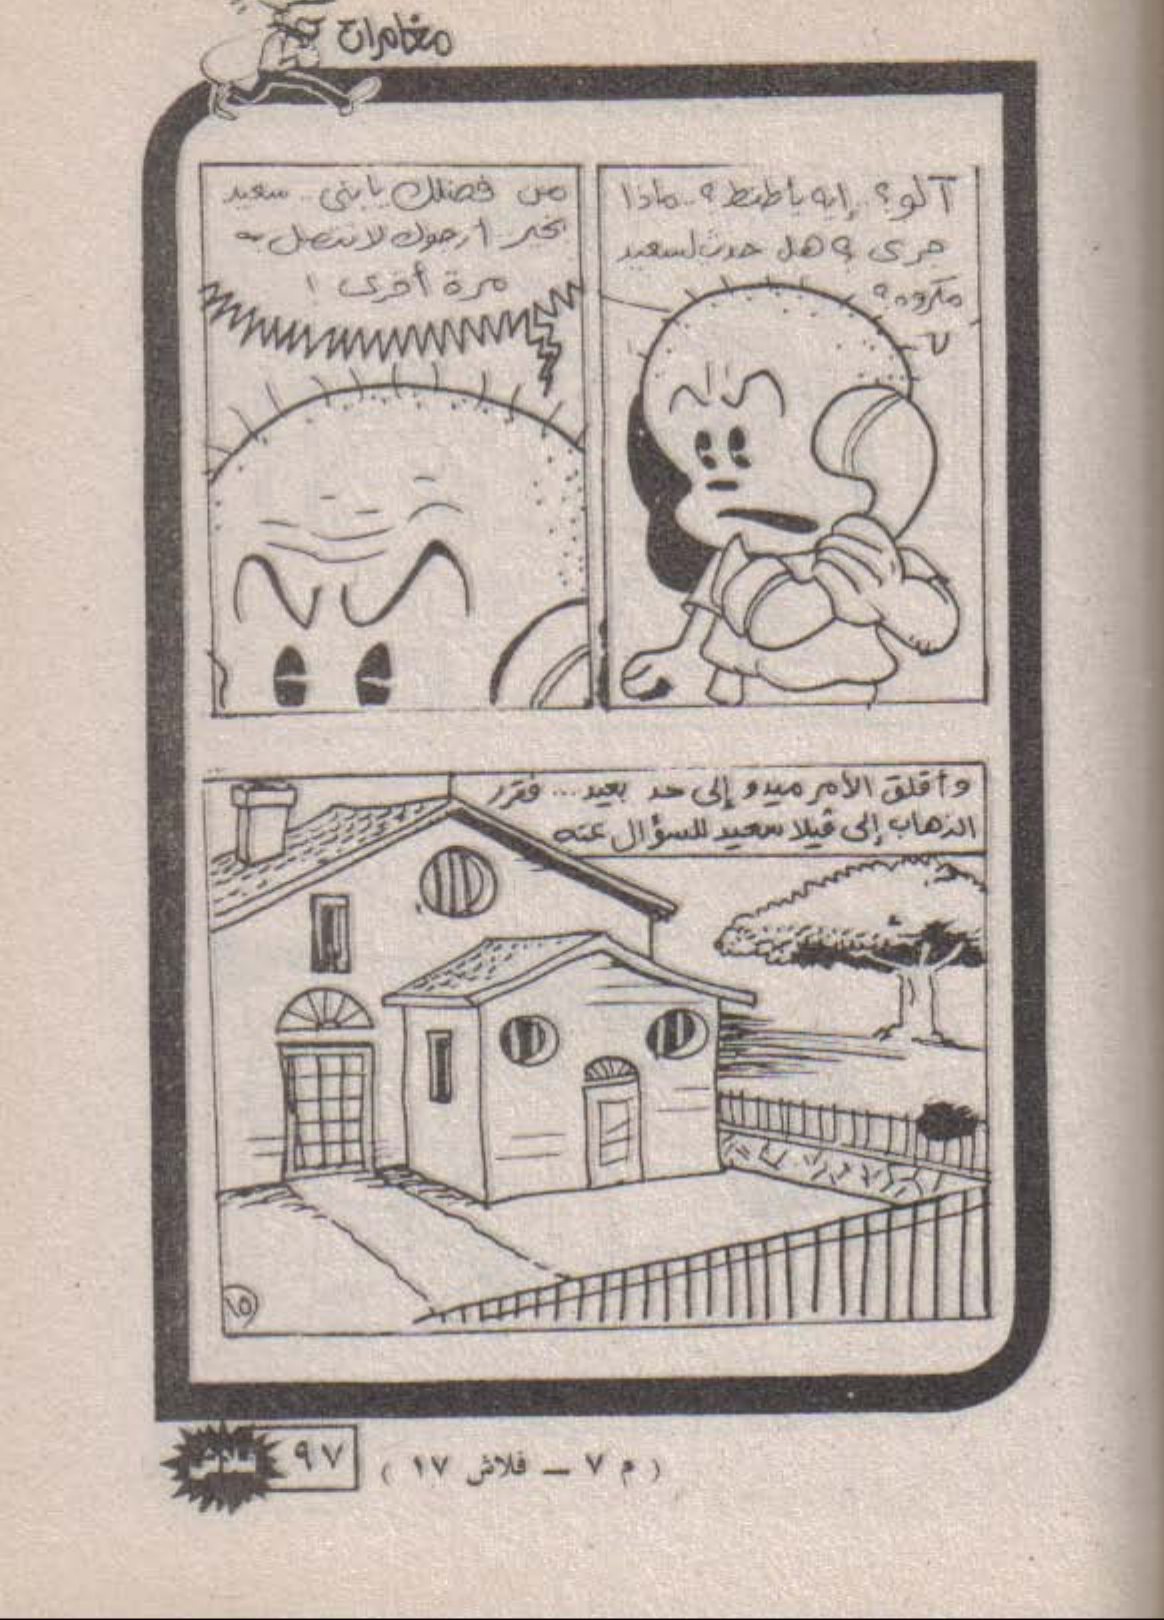 مغامرات
آلو؟.. إيه يا طنط؟.. ماذا
جرى؟ هل حدث لسعيد
مكروه؟
من فضلك يا بنى.. سعيد
بخير أرجوك لا تتصل به
مرة أخرى!
وأقلق الأمر ميدو إلى حد بعيد... فقرر
الذهاب إلى ڤيلا سعيد للسؤال عنه
١٥
( م ٧ — فلاش ١٧ )
٩٧